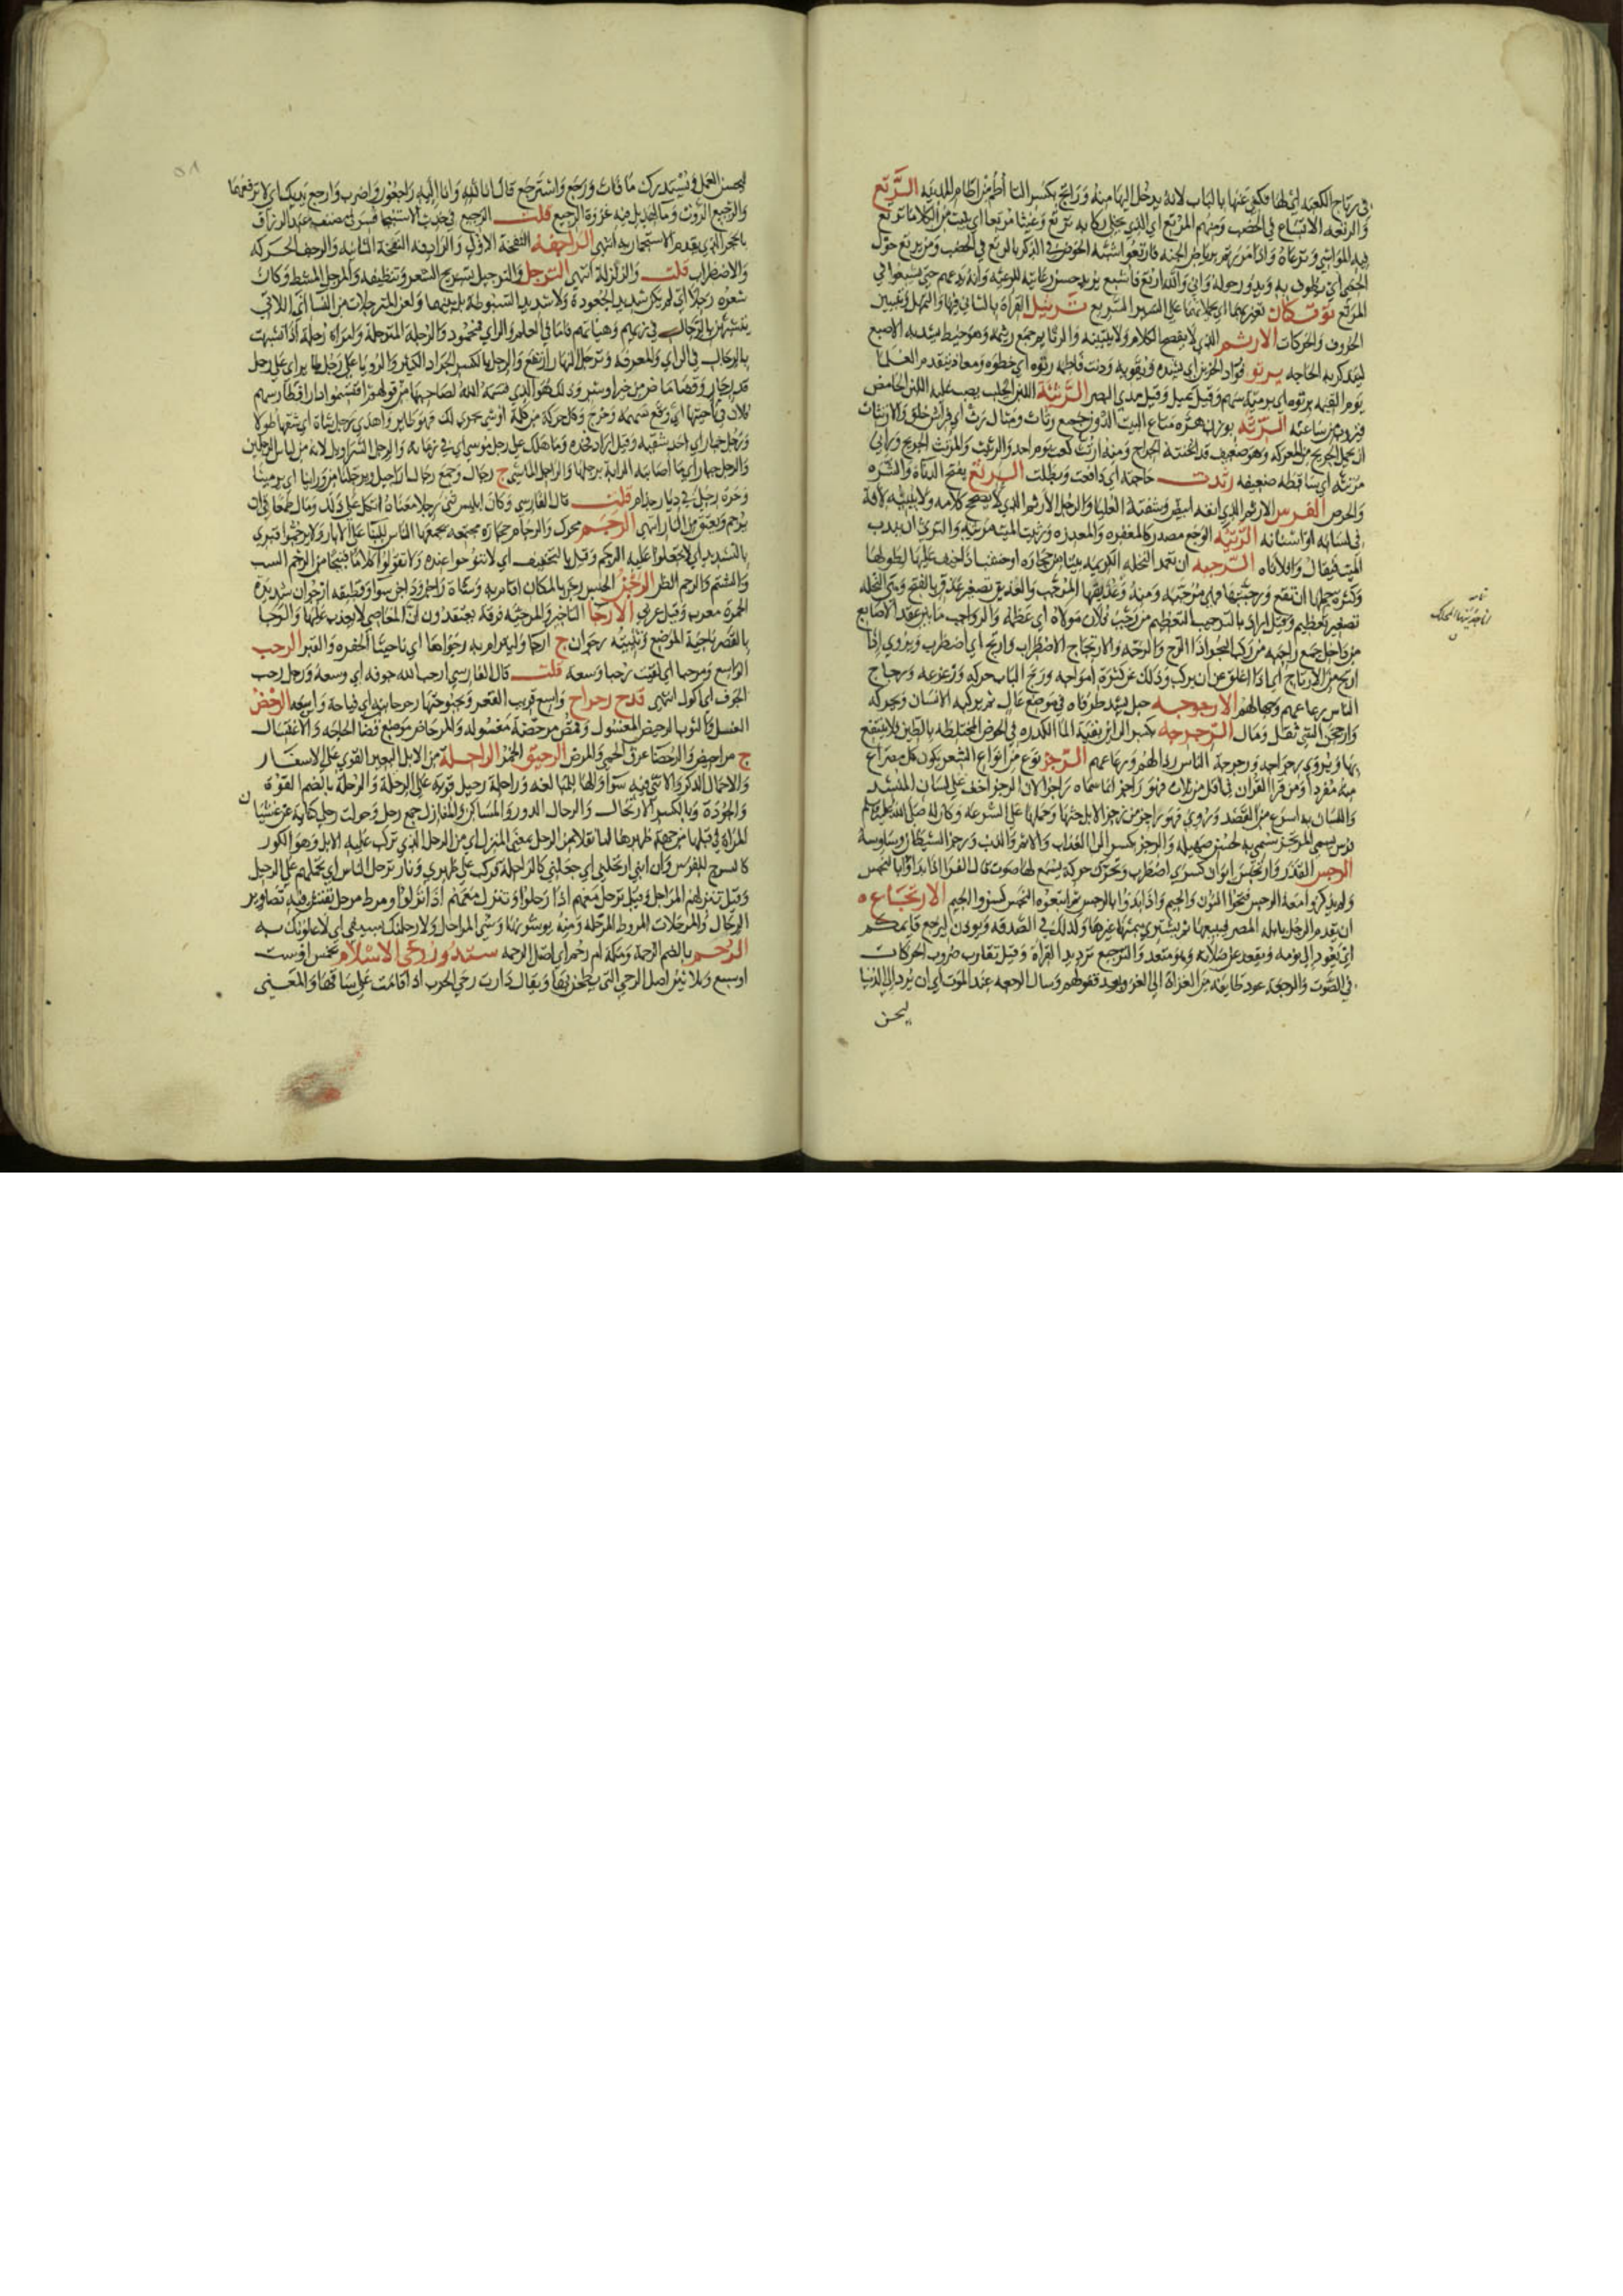 في رتاج الكعبة اي لها فكني عنها بالباب لانه يدخل اليها منه وراتج بكسر التا اطم من اطام المدينه الرتع
والرتعه الاتساع في الخصب ومنهم المرتع اي الذي يخلي ركابه ترتع وغيثا مرتعا اي ينبت من الكلا ما ترتع
فيه المواشي وترعاه واذا مررتم برياض الجنه فارتعوا شبه الخوض في الذكر بالرتع في الخصب ومن يرتع حول
الحمى اي يطوف به ويدور حوله واني والله ارتع فاشبع يريد حسن رعايته للرعيه وانه يدعهم حتى يشبعوا في
المرتع توتكان تعزيرهما اي يحملانهما على السير السريع ترتيل القراة بالتاني فيها والتمهل وتبيين
الحروف والحركات الارتم الذي لا يفصح الكلام ولا يبينه والرتايم جمع رتيمه وهو خيط يشد به الاصبع
ليتذكر به الحاجه يرتو فؤاد الحزين اي يشده ويقويه ودنت فاطمه رتوه اي خطوه ومعاذ يتقدم العلما
يوم القيمه برتوه اي برميه سهم وقيل بميل وقيل مدي البصر الرثيئة اللبن الحليب يصب عليه اللبن الحامض
فيروب من ساعته الرثه بوزن الهره متاع البيت الدون جمع رثاث ومثال رث اي فراش خلق والارتثاث
ان يحمل الجريح من المعركه وهو ضعيف قد اثخنته الجراح ومنه ارتث كعب يوم احد والرثيث والمرتث الجريح وراني
مرثه اي ساقطه ضعيفه رثدت حاجته اي دافعت ومطلت الرثع بفتح الثاء والشره
والحرص الفرس الارثم الذي انفه ابيض وشفته العليا والرجل الارثم الذي لا يصحح كلامه ولا يبينه لافة
في لسانه او اسنانه الرثيه الوجع مصدر كالمغفره والمعذره ورثيت الميت مرثيه والترثي ان يندب
الميت فيقال وافلاناه الترجيبه ان تعمد النخله الكريمه ببنا من حجاره او خشب اذا خيف عليها لطولها
وكثره حملها ان تقع ورجبتها فهي مرجبه ومنه وعذيقها المرجب والعذيق تصغير عذق بالفتح وهي النخله
تصغير تعظيم وقيل اراد بالترجيب التعظيم من رجب فلان مولاه اي عظمه والرواجب ما بين عقد الاصابع
من داخل جمع راجبه من ركب البحر اذا ارتج والرجه والارتجاج الاضطراب وارتج اي اضطرب ويروي اذا
ارتج من الارتاج اي اذا اغلق عن ان يركب وذلك عن كثره امواجه ورتج الباب حركه وزعزعه ورجاج
الناس رعاعهم وجهالهم الارجوحه حبل يشد طرفاه في موضع عال ثم يركبه الانسان ويحركه
وارجحن الشي ثقل ومال الرجرجه بكسر الراين بقية الما الكدره في الحوض المختلطه بالطين فلا ينتفع
بها ويروي رجراجه ورجرجة الناس رذالهم ورعاعهم الرجز نوع من انواع الشعر يكون كل مصراع
منه مفردا ومن قرا القران في اقل من ثلاث فهو راجز انما سماه راجزا لان الرجز اخف على لسان المنشد
واللسان به اسرع من القصيد ويروي فهو راجز من رجز الابل حثها وحملها على السرعه وكان له صلى الله عليه وسلم
فرس يسمى المرتجز سمي به لحسن صهيله والرجز بكسر الرا العذاب والاثم والذنب ورجز الشيطان وساوسه
الرجس القذر وارتجس ايوان كسري اضطرب وتحرك حركه يسمع لها صوت قال الفرا اذا بداوا بالنجس
ولم يذكروا معه الرجس فتحوا النون والجيم واذا بدوا بالرجس ثم اتبعوه النجس كسروا الجيم الارتجاع
ان يقدم الرجل بابله المصر فيبيعها ثم يشتري بثمنها غيرها وكذلك في الصدقه ويوذن ليرجع قايمكم
اي يعود الى نومه ويقعد عن صلاته وهو متعد والترجيع ترديد القراة وقيل تقارب ضروب الحركات
في الصوت والرجعه عود طايفه من الغزاة الى الغزو بعد قفولهم وسال الرجعه عند الموت اي ان يرد الى الدنيا
ليحسن
ليحسن العمل ويستدرك ما فات ورجع واسترجع قال انا لله وانا اليه راجعون واضرب وارجع يديك اي لا ترفعهما
والرجيع الروث وما لهذيل فيه غزوة الرجيع قلت الرجيع في حديث الاستنجا فسر في مصنف عبد الرزاق
بالحجر الذي يقدم الاستجمار به انتهى الراجفه النفخة الاولى والرادفه النفخة الثانيه والرجف الحركه
والاضطراب قلت والزلزلة انتهى الترجل والترجيل تسريح الشعر وتنظيفه والمرجل المشط وكان
شعره رجلا اي لم يكن شديد الجعودة ولا شديد السبوطه بل بينهما ولعن المترجلات من النسا اي اللاتي
يتشبهن بالرجال في زيهم وهياتهم فاما في العلم والراي فمحمود والرجله المترجلة وامراة رجلة اذا تشبهت
بالرجال في الراي والمعرفه وترجل النهار ارتفع والرجل بالكسر الجراد الكثير والرويا على رجل طاير اي على رجل
قدر جار وقضا ماض من خير او شر وذلك هو الذي قسمه الله لصاحبها من قولهم اقتسموا دارا فطار سهم
فلان في ناحيتها اي وقع سهمه وخرج وكل حركة من كلمة او شي يجري لك فهو طاير واهدي رجل شاة اي شقها طولا
ورجل حمار اي احد شقيه وقيل اراد فخذه وما اهلك على رجل موسى اي في زمانه والرجل السراويل لانه من لباس الرجلين
والرجل جبار اي ما اصابته الدابة برجلها والراجل الماشي ج رجال وجمع رجال اراجيل
وحرة رجلى في ديار جذام قلت قال الفارسي وكان ابليس ثنى رجلا معناه اتكل على ذلك ومال طمعا في ان
يرحم ويعتق من النار انتهى الرجم محرك والرجام حجاره مجتمعه يجمعها الناس للبنا على الابار ولا ترجموا قبري
بالتشديد اي لا تجعلوا عليه الرجم وقيل بالتخفيف اي لا تنوحوا عنده ولا تقولوا كلاما قبيحا من الرجم السب
والشتم والرجم الظن الرجن الحبس رجن بالمكان اقام به وشاة راجن وداجن سوا وقطيفه ارجوان شديدة
الحمرة معرب وقيل عربي الارجا التاخير والمرجيه فرقه يعتقدون ان المعاصي لا يعذب عليها والرجا
بالقصر ناحية الموضع وتثنيته رجوان ج ارجا وليترام به رجواها اي ناحيتا الحفره والقبر الرحب
الواسع ومرحبا اي لقيت رحبا وسعه قلت قال الفارسي ارحب الله جوفه اي وسعه ورجل رحب
الجوف اي اكول انتهى قدح رحراح واسع قريب القعر وبحبوحتها رحرحانيه اي فياحة واسعه الرحض
الغسل والثوب الرحيض المغسول وقمص مرحضة مغسوله والمرحاض موضع قضا الحاجه والاغتسال
ج مراحيض والرحضا عرق الحمى والمرض الرحيق الخمر الراحلة من الابل البعير القوي على الاسفار
والاحمال الذكر والانثى فيه سوا والها للمبالغه وراحلة رحيل قويه على الرحلة والرحلة بالضم القوة
والجودة وبالكسر الارتحال والرحال الدور والمساكن والمنازل جمع رحل وحولت رحلي كناية عن غشيان
المراة في قبلها من جهة ظهرها اما نقلا من الرحل بمعنى المنزل او من الرحل الذي تركب عليه الابل وهو الكور
كالسرج للفرس وان ابني ارتحلني اي جعلني كالراحلة فركب على ظهري ونار ترحل الناس اي تحملهم على الرحيل
وقيل تنزلهم المراحل وقيل ترحل معهم اذا رحلوا وتنزل معهم اذا نزلوا ومرط مرحل نقش فيه تصاوير
الرحال والمرحلات المروط المرحله ومنه يوشونها وشي المراحل ولارحلنك بسيفي اي لاعلونك به
الرحم بالضم الرحمة ومكة ام رحم اي اصل الرحمه ستدور رحى الاسلام بخمس او ست
او سبع وثلاثين اصل الرحى التي يطحن بها ويقال دارت رحى الحرب اذا قامت على ساقها والمعنى